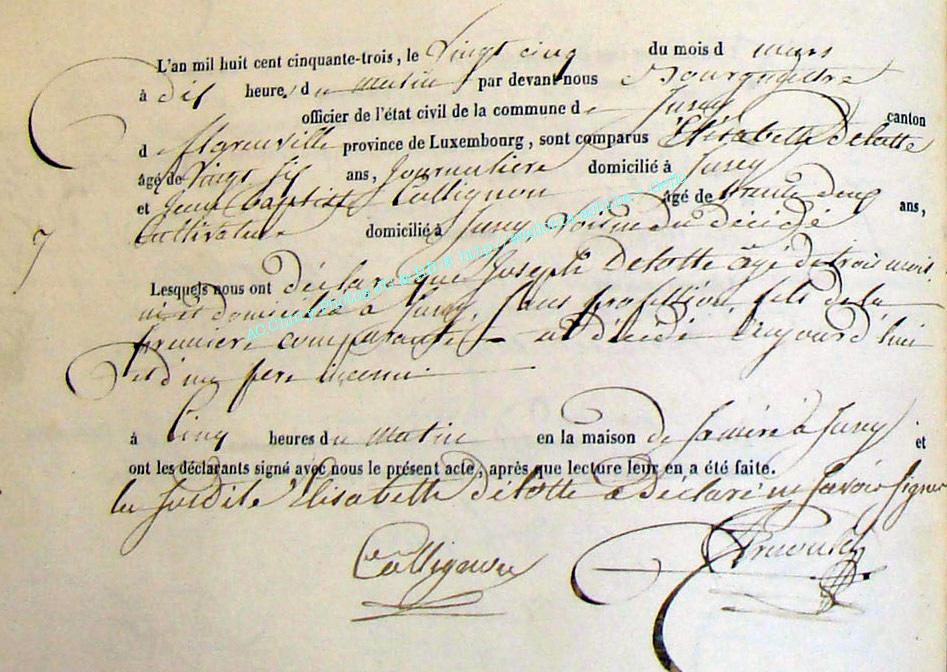 L'an mil huit cent cinquante-trois, le Vingt cinq du mois d mars
à dix heures du matin par devant nous Bourgmestre
officier de l'état civil de la commune de Jamoy canton
d florenville province de Luxembourg, sont comparus Elisabeth Delotte
âgé de Vingt six ans, Journaliere domicilié à
et Jean Baptiste Collignon âgé de trente deux ans,
Cultivateur domicilié à voisin du décédé
7
Lesquels nous ont déclaré que Joseph Delotte âgé de trois mois
né et domicilié à sans profession fils de la
premiere comparante est décédé aujourd'hui
et d'un pere inconnu
à Cinq heures du matin en la maison de sa mère à et
ont les déclarants signé avec nous le présent acte, après que lecture leur en a été faite.
la susdite Elisabette Delotte a Déclaré ne savoir signer
Collignon
AC Chiny Photos